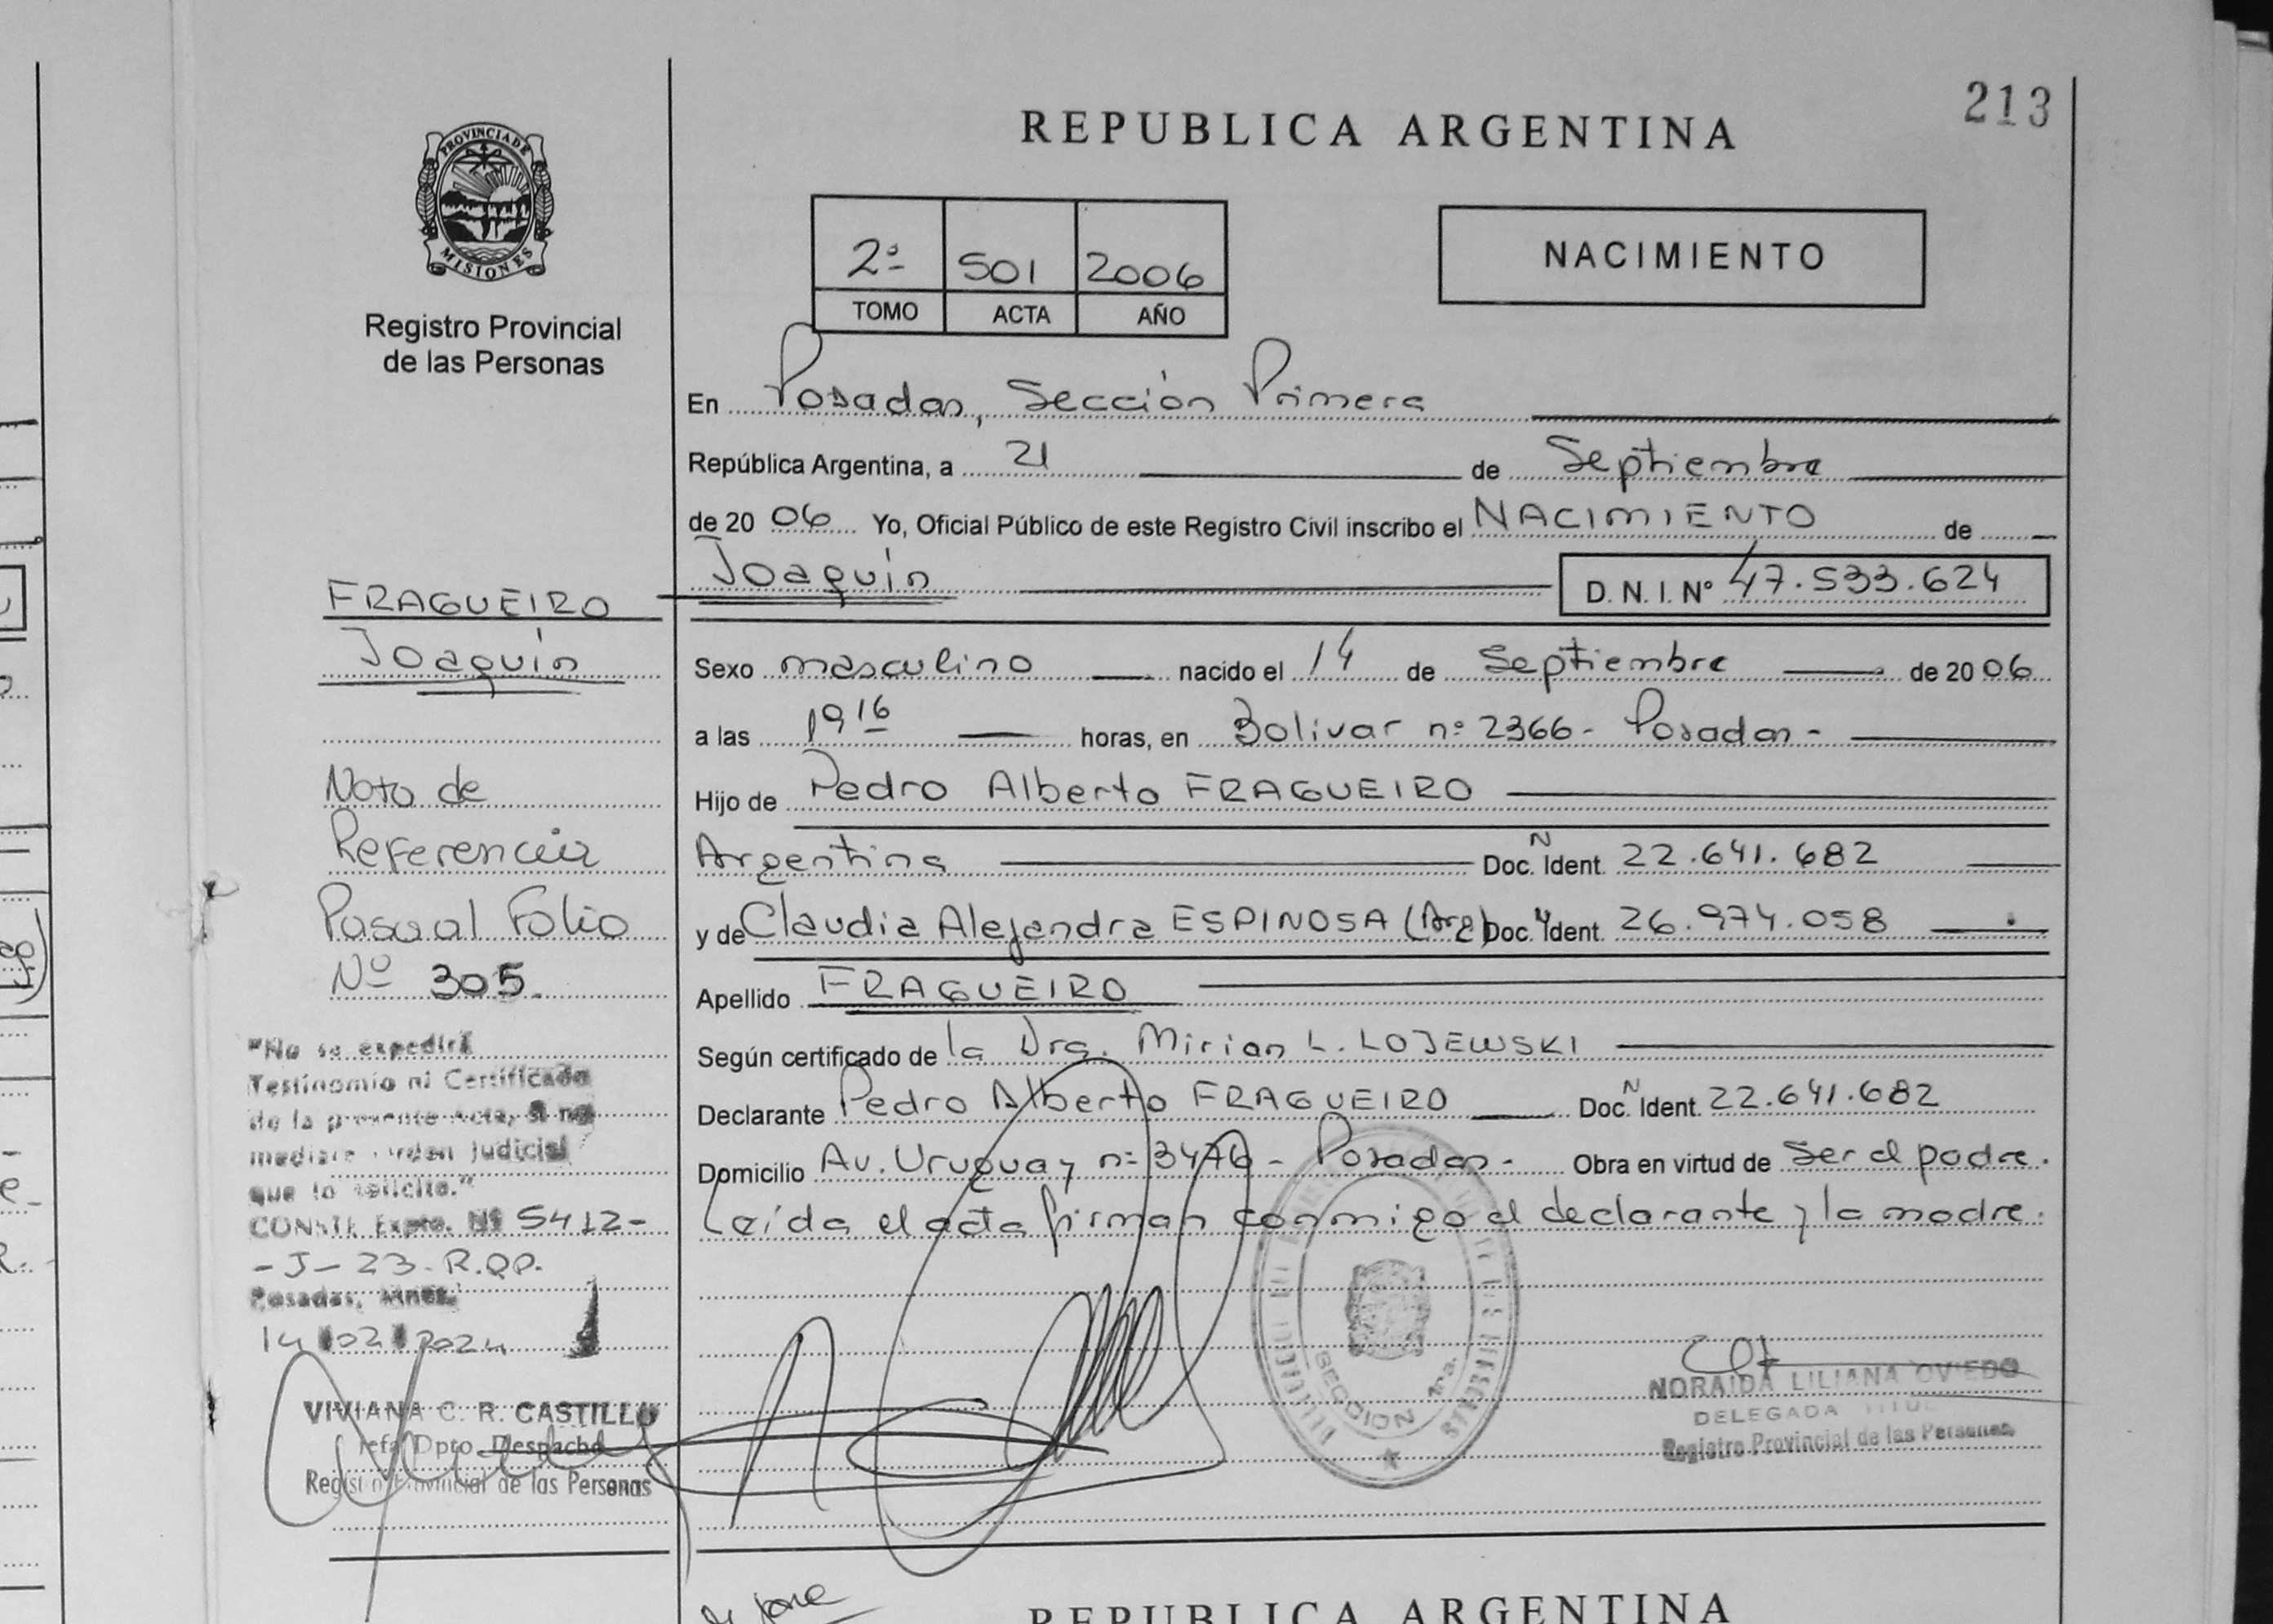 213
REPUBLICA ARGENTINA
PROVINCIA DE
MISIONES
Registro Provincial
de las Personas
2ª 501 2006
TOMO ACTA AÑO
NACIMIENTO
En Posadas, Sección Primera
República Argentina, a 21 de Septiembre
de 20 06 Yo, Oficial Público de este Registro Civil inscribo el NACIMIENTO de
Joaquín D. N. I. Nº 47.533.624
FRAGUEIRO
Joaquín
Sexo masculino nacido el 14 de Septiembre de 20 06
a las 19 16 horas, en Bolivar nº 2366 - Posadas -
Hijo de Pedro Alberto FRAGUEIRO
Argentina Doc. N Ident. 22.641.682
y de Claudia Alejandra ESPINOSA (Arg) Doc. Ident. 26.974.058
Apellido FRAGUEIRO
Según certificado de la Dra. Mirian L. LOJEWSKI
Declarante Pedro Alberto FRAGUEIRO Doc. N Ident. 22.641.682
Domicilio Av. Uruguay nº 3476 - Posadas - Obra en virtud de ser el padre.
Leída el acta firman conmigo el declarante y la madre.
Nota de
Referencia
Pasa al Folio
Nº 305
"No se expedirá
Testimonio ni Certificado
de la presente Acta, si no
mediare orden judicial
que lo solicite."
CONSTE Expte. Nº 5412-
-J-23-R.PP.
Posadas, Mnes.
14 02 2024
VIVIANA C. R. CASTILLO
Jefa Dpto. Despacho
Registro Provincial de las Personas
SECCION 1ra.
NORAIDA LILIANA OVIEDO
DELEGADA TITUL
Registro Provincial de las Personas
REPUBLICA ARGENTINA